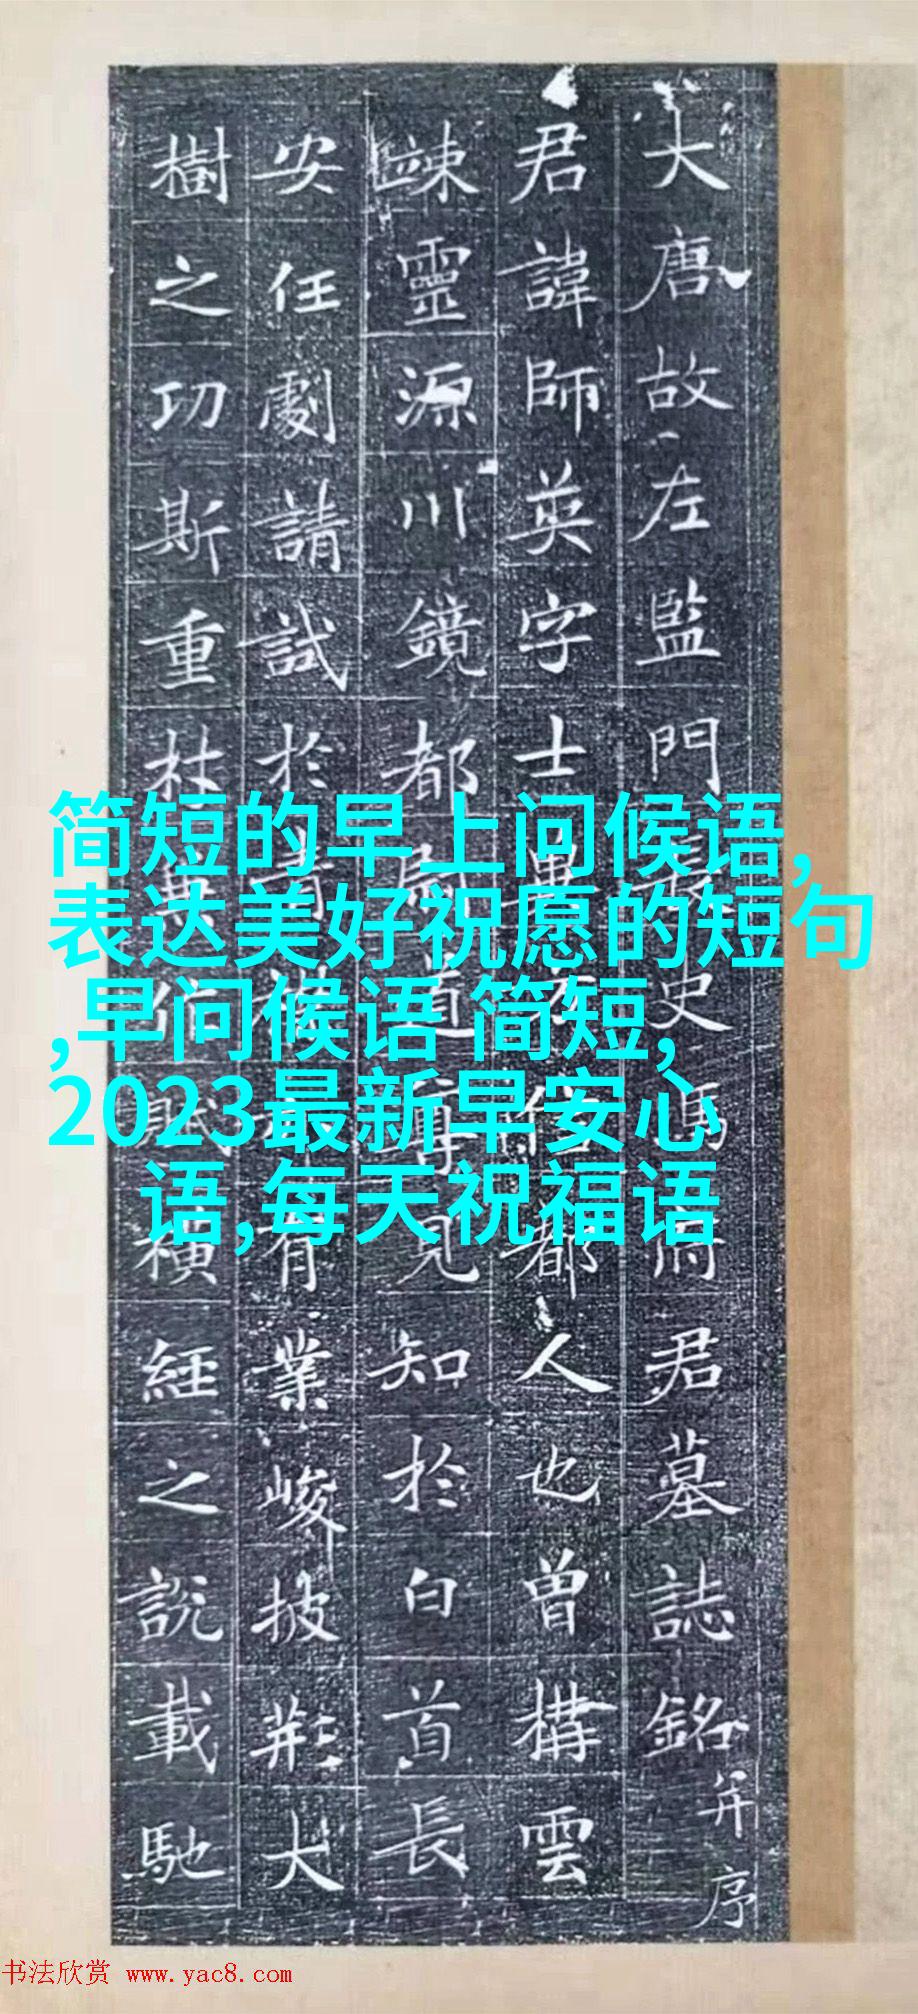 大唐故左監門史馮府君墓誌銘并序
君諱師英字士都人也曾構雲
竦靈源川鏡都尉道尊見知於白首長
安任劇請試於有業峻披荊大
樹之功斯重杜橫經之說載馳
简短的早上问候语,
表达美好祝愿的短句
,早问候语 简短,
2023最新早安心
语,每天祝福语
书法欣赏 www.yac8.com